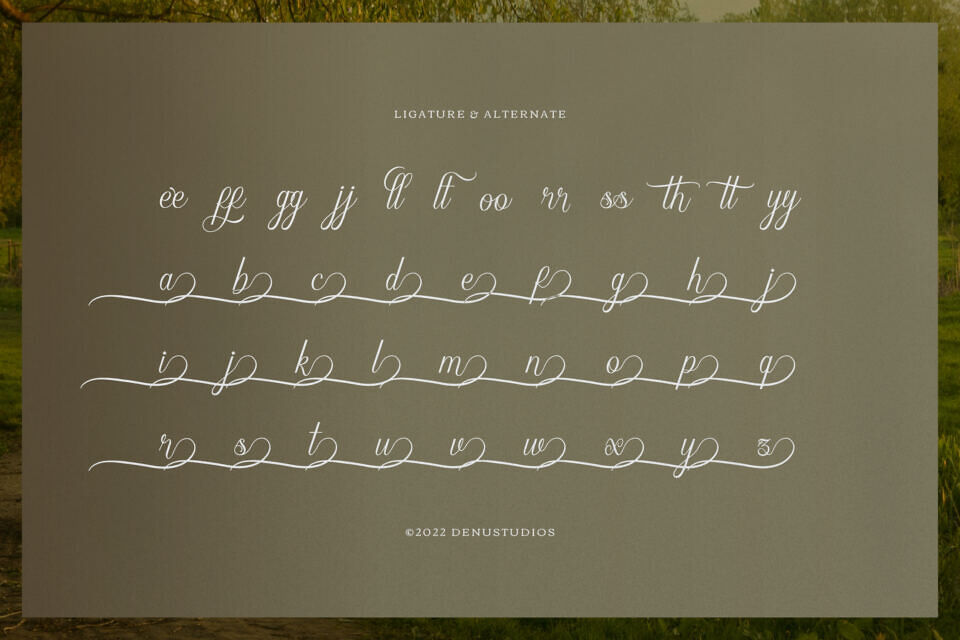 LIGATURE & ALTERNATE
ee ff gg jj ll lt oo rr ss th tt yy
a b c d e f g h j
i j k l m n o p q
r s t u v w x y z
©2022 DENUSTUDIOS